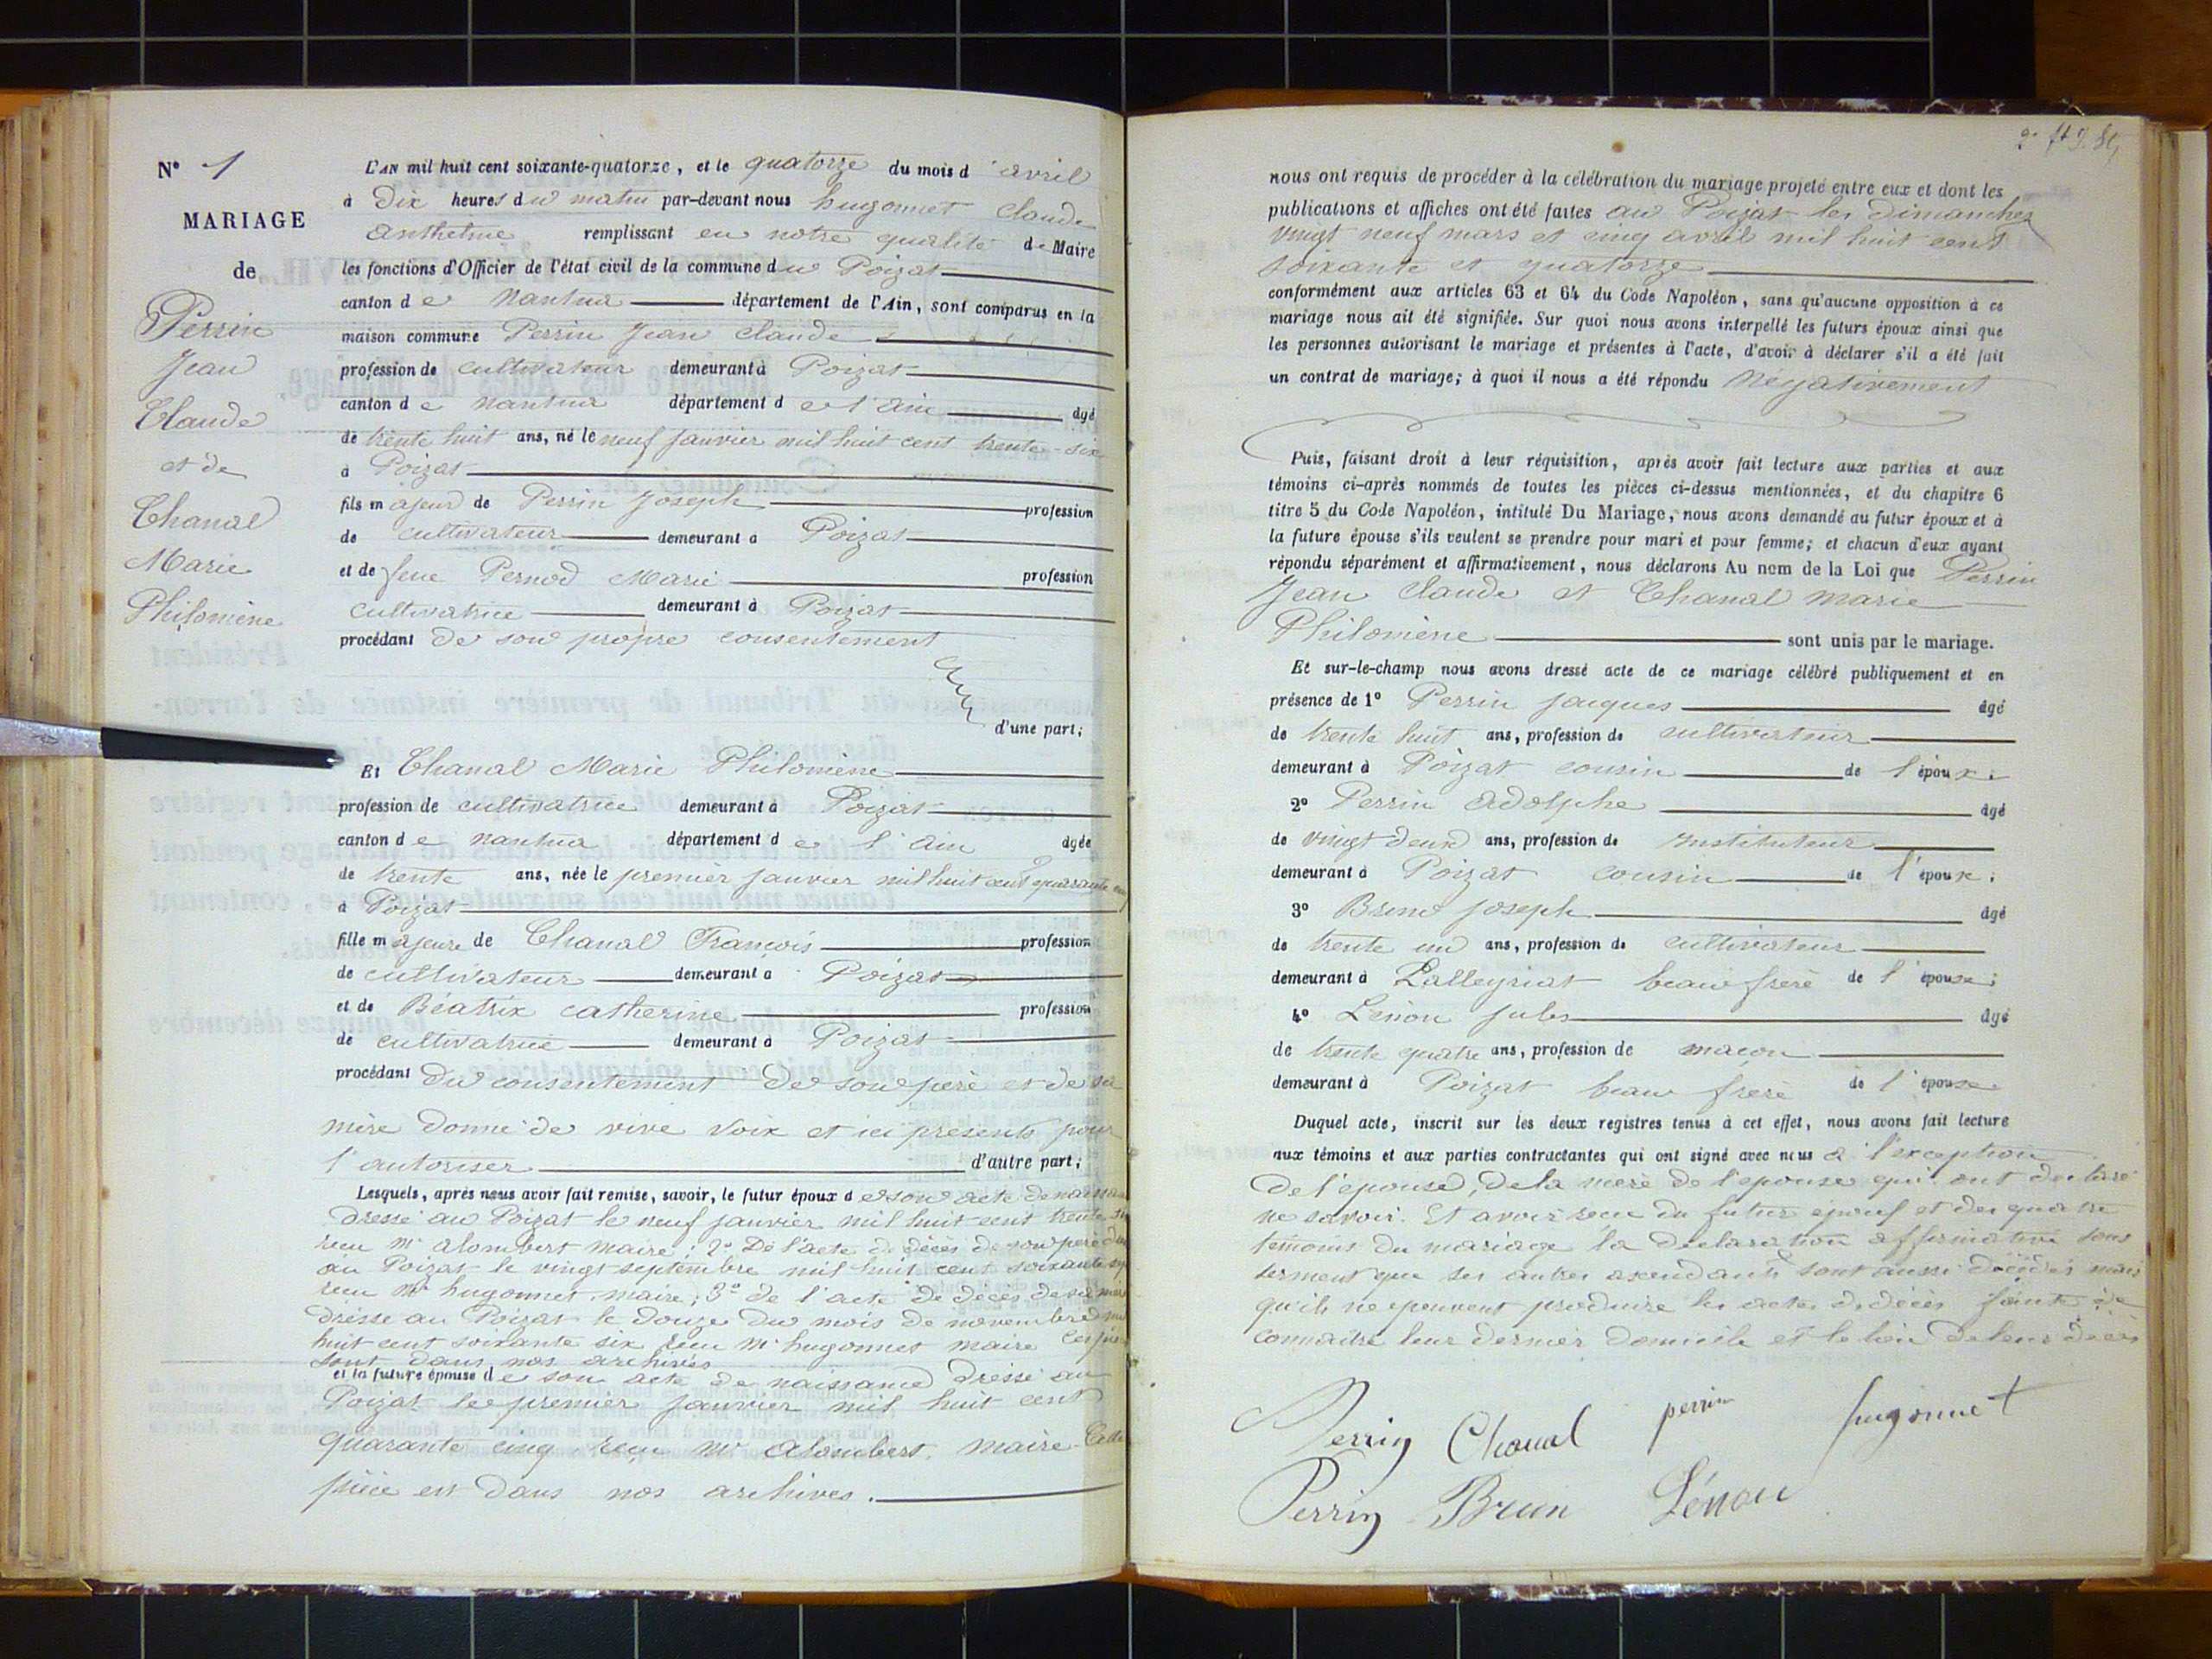 N° 1
MARIAGE
de
Perrin
Jean
Claude
et de
Chanal
Marie
Philomène
L'AN mil huit cent soixante-quatorze, et le quatorze du mois d'avril
à Dix heures du matin par-devant nous hugonnet Claude
Anthelme remplissant en notre qualité de Maire
les fonctions d'Officier de l'état civil de la commune du Poizat
canton de Nantua département de l'Ain, sont comparus en la
maison commune Perrin Jean Claude
profession de cultivateur demeurant à Poizat
canton de Nantua département de l'Ain âgé
de trente huit ans, né le neuf janvier mil huit cent trente-six
à Poizat
fils majeur de Perrin Joseph profession
de cultivateur demeurant à Poizat
et de feue Pernod Marie profession
cultivatrice demeurant à Poizat
procédant de son propre consentement
d'une part;
Et Chanal Marie Philomène
profession de cultivatrice demeurant à Poizat
canton de Nantua département de l'Ain âgée
de trente ans, née le premier janvier mil huit cent quarante cinq
à Poizat
fille majeure de Chanal François profession
de cultivateur demeurant à Poizat
et de Béatrix Catherine profession
de cultivatrice demeurant à Poizat
procédant du consentement de son père et de sa
mère donné de vive voix et ici présents pour
l'autoriser d'autre part;
Lesquels, après nous avoir fait remise, savoir, le futur époux de son acte de
dressé au Poizat le neuf janvier mil huit cent trente
reçu Mr alombert maire; 2° De l'acte de décès de son père
au Poizat le vingt septembre mil huit cent soixante
reçu Mr hugonnet maire; 3° de l'acte de décès de sa
dressé au Poizat le Douze du mois de novembre
huit cent soixante six reçu Mr hugonnet maire Ces
sont dans nos archives
et la future épouse de son acte de naissance dressé au
Poizat le premier janvier mil huit cent
quarante cinq reçu Mr alombert, maire Cette
pièce est dans nos archives.
nous ont requis de procéder à la célébration du mariage projeté entre eux et dont les
publications et affiches ont été faites au Poizat les dimanches
vingt neuf mars et cinq avril mil huit cent
soixante et quatorze
conformément aux articles 63 et 64 du Code Napoléon, sans qu'aucune opposition à ce
mariage nous ait été signifiée. Sur quoi nous avons interpellé les futurs époux ainsi que
les personnes autorisant le mariage et présentes à l'acte, d'avoir à déclarer s'il a été fait
un contrat de mariage; à quoi il nous a été répondu Négativement
Puis, faisant droit à leur réquisition, après avoir fait lecture aux parties et aux
témoins ci-après nommés de toutes les pièces ci-dessus mentionnées, et du chapitre 6
titre 5 du Code Napoléon, intitulé Du Mariage, nous avons demandé au futur époux et à
la future épouse s'ils veulent se prendre pour mari et pour femme; et chacun d'eux ayant
répondu séparément et affirmativement, nous déclarons Au nom de la Loi que Perrin
Jean Claude et Chanal Marie
Philomène sont unis par le mariage.
Et sur-le-champ nous avons dressé acte de ce mariage célébré publiquement et en
présence de 1° Perrin Jacques âgé
de trente huit ans, profession de cultivateur
demeurant à Poizat cousin de l'époux;
2° Perrin Adolphe âgé
de vingt deux ans, profession de Instituteur
demeurant à Poizat cousin de l'époux;
3° Brun Joseph âgé
de trente un ans, profession de cultivateur
demeurant à Lalleyriat beau frère de l'épouse;
4° Lénon Jules âgé
de trente quatre ans, profession de maçon
demeurant à Poizat beau frère de l'épouse
Duquel acte, inscrit sur les deux registres tenus à cet effet, nous avons fait lecture
aux témoins et aux parties contractantes qui ont signé avec nous à l'exception
De l'épouse, de la mère de l'épouse qui ont déclaré
ne savoir. Et avoir reçu du futur époux et des quatre
témoins du mariage la déclaration affirmative sous
serment que ses autres ascendants sont aussi décédés mais
qu'ils ne peuvent produire les actes de décès faute de
connaître leur dernier domicile et le lieu de leur décès
Perrin Chanal perrin hugonnet
Perrin Brun Lénon